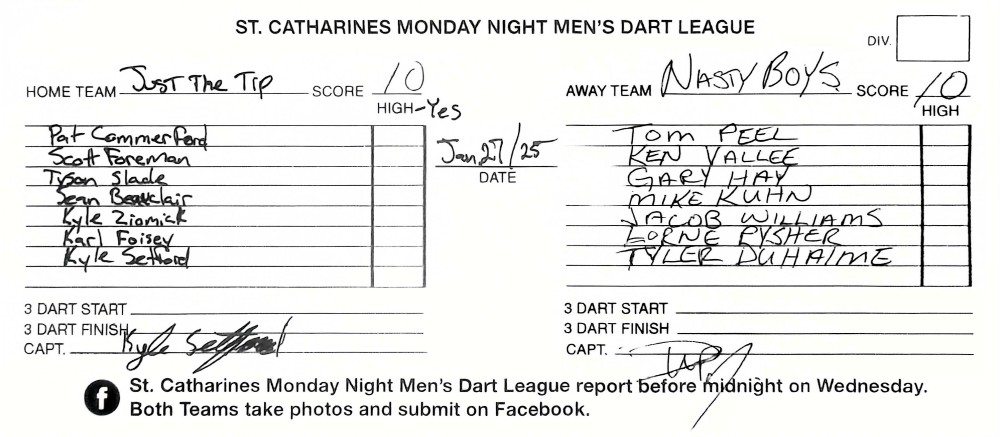 ST. CATHARINES MONDAY NIGHT MEN'S DART LEAGUE
DIV.
HOME TEAM Just The Tip SCORE 10
HIGH-Yes
AWAY TEAM NASTY BOYS SCORE 10
HIGH
Jan 27/25
DATE
Pat Commerford
Scott Foreman
Tyson Slade
Sean Beauclair
Kyle Ziomick
Karl Foisey
Kyle Setford
TOM PEEL
KEN VALLEE
GARY HAY
MIKE KUHN
JACOB WILLIAMS
LORNE PYSHER
TYLER DUHAIME
3 DART START
3 DART FINISH
CAPT. Kyle Setford
3 DART START
3 DART FINISH
CAPT.
f St. Catharines Monday Night Men's Dart League report before midnight on Wednesday.
Both Teams take photos and submit on Facebook.